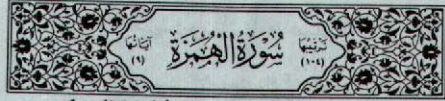 ترتيبها (١٠٤) سُورَةُ الْهُمَزَةِ آياتها (٩)